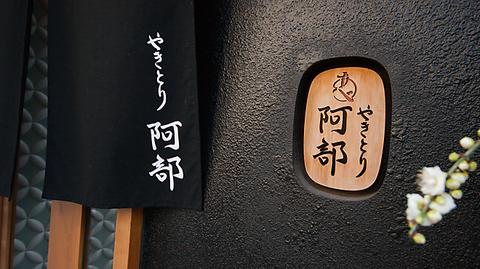 やきとり
阿部
やきとり
阿部